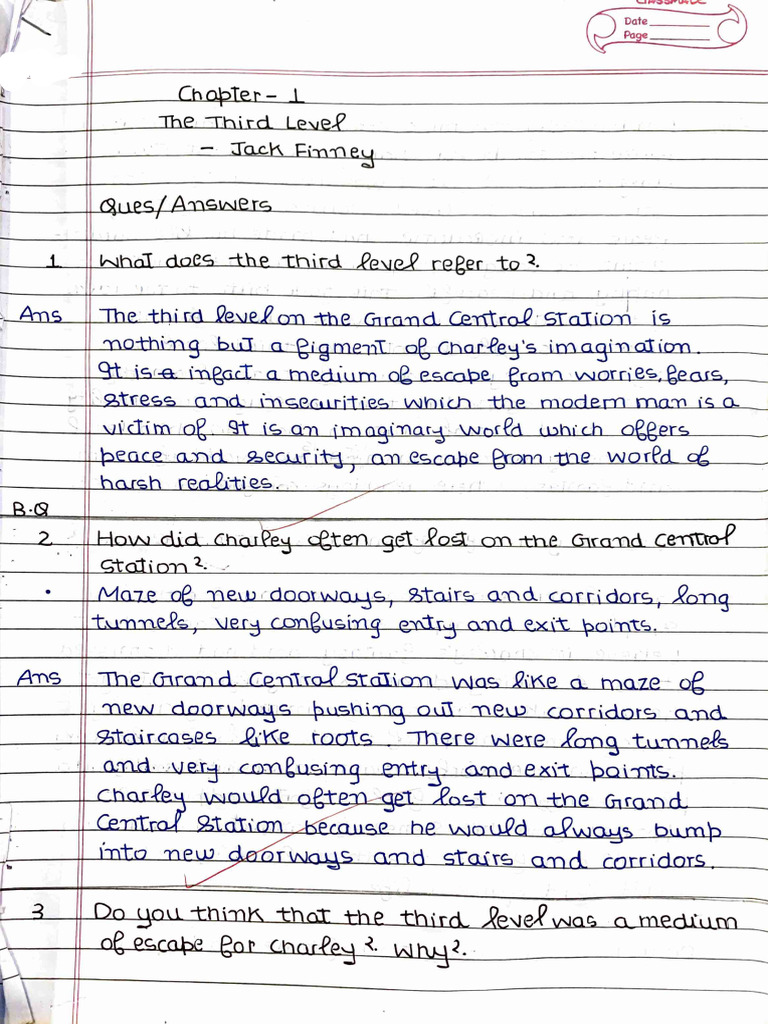 CLASSMATE
Date
Page
Chapter - 1
The Third Level
- Jack Finney
Ques/Answers
1 What does the third level refer to?
Ans The third level on the Grand Central Station is
nothing but a figment of Charley's imagination.
It is a infact a medium of escape from worries, fears,
stress and insecurities which the modern man is a
victim of. It is an imaginary world which offers
peace and security, an escape from the world of
harsh realities.
B.Q
2 How did Charley often get lost on the Grand Central
Station?
• Maze of new doorways, stairs and corridors, long
tunnels, very confusing entry and exit points.
Ans The Grand Central Station was like a maze of
new doorways pushing out new corridors and
staircases like roots. There were long tunnels
and very confusing entry and exit points.
Charley would often get lost on the Grand
Central Station because he would always bump
into new doorways and stairs and corridors.
3 Do you think that the third level was a medium
of escape for Charley? Why?